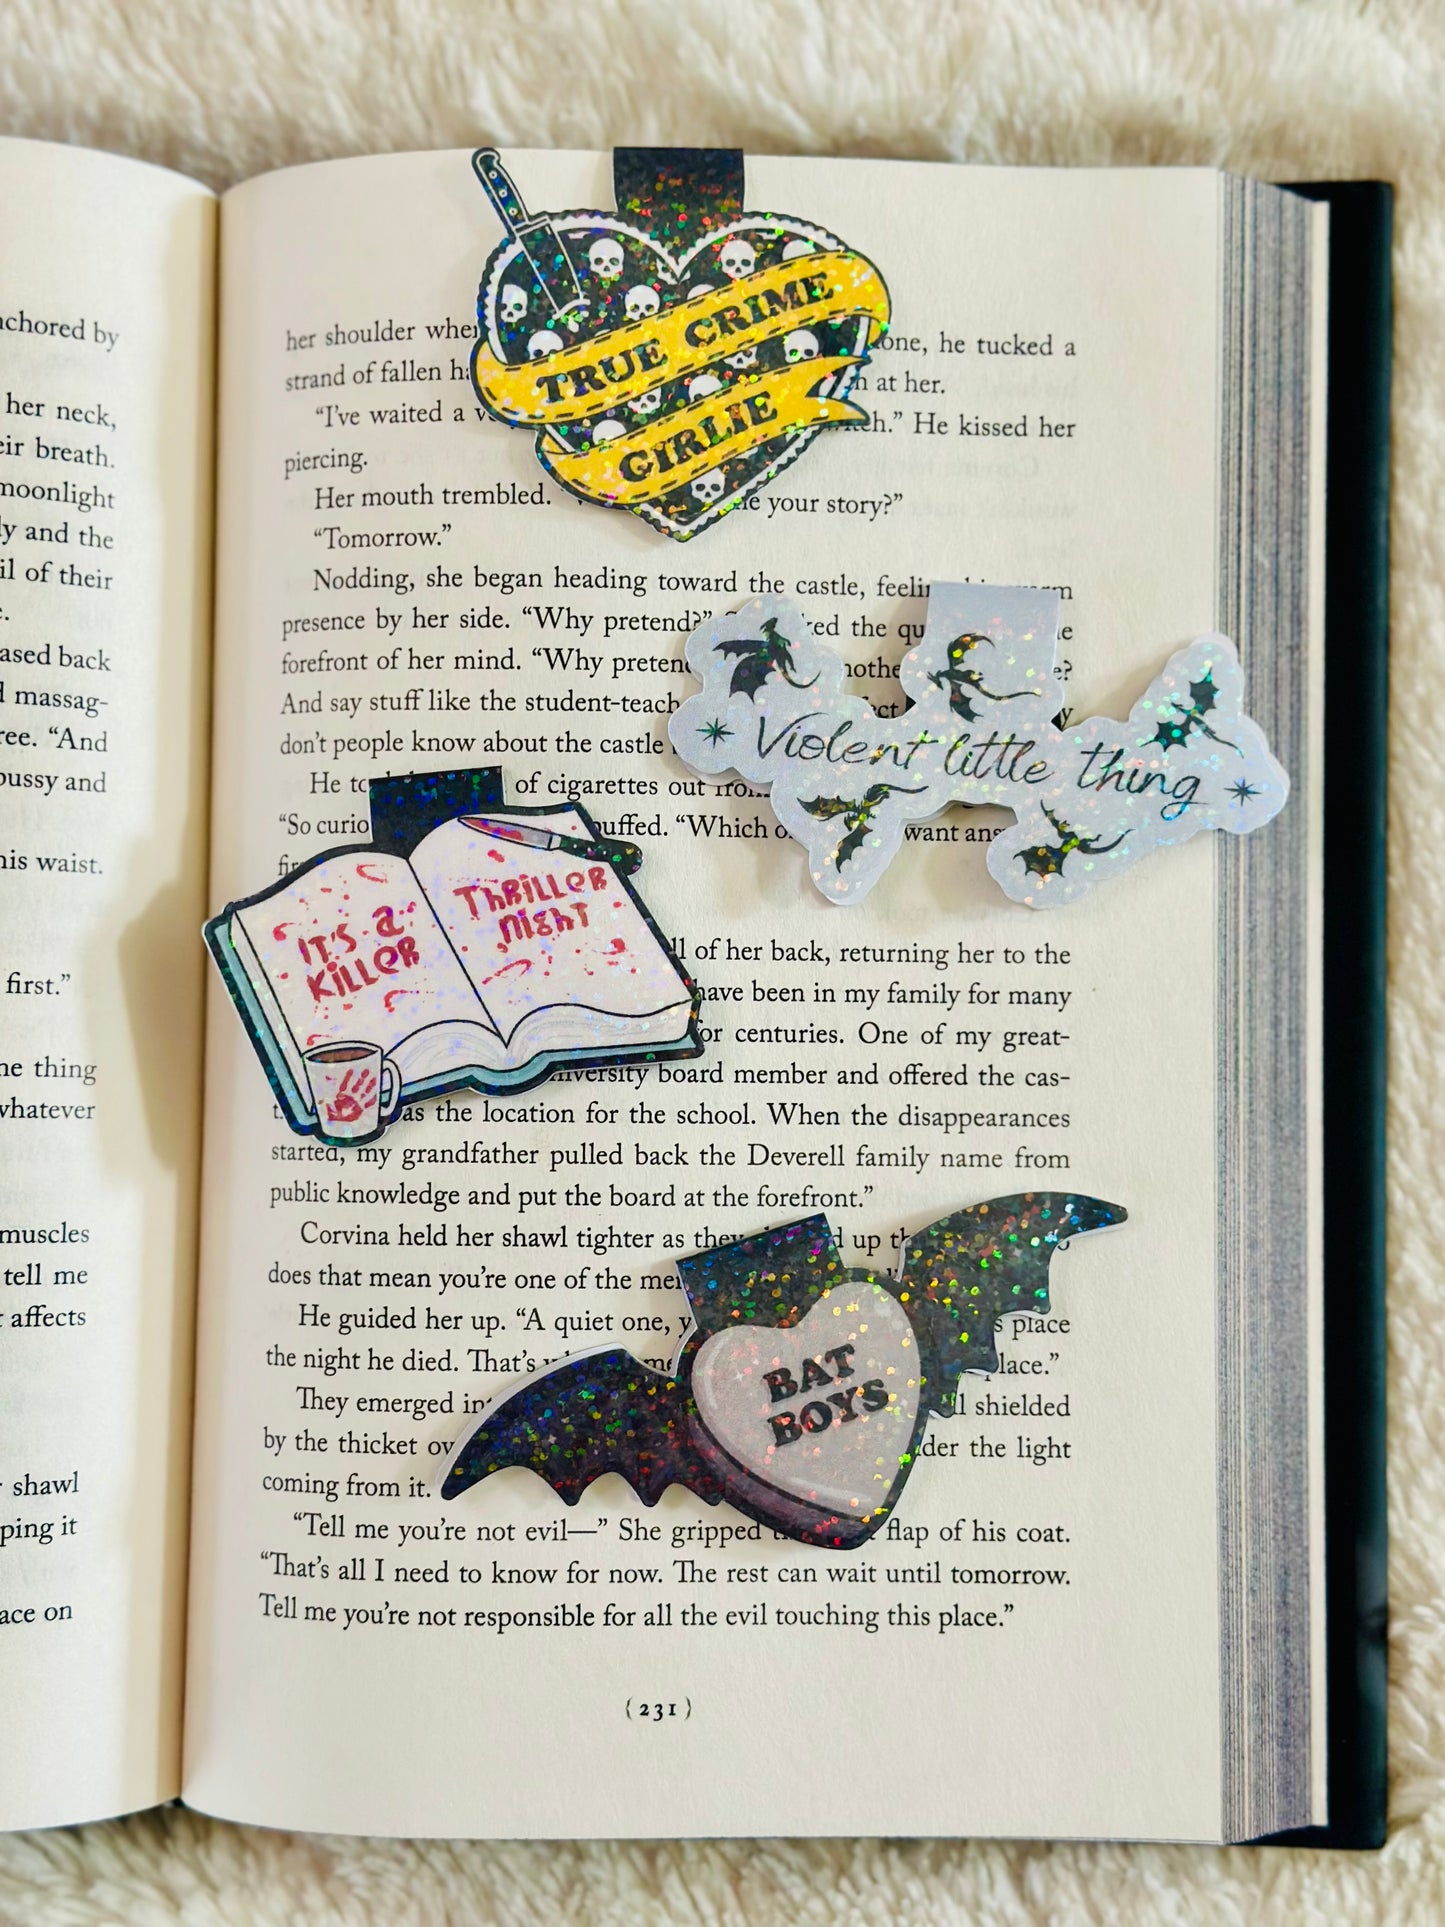 nchored by
her neck,
eir breath.
moonlight
ly and the
il of their
ased back
massag-
ree. “And
pussy and
his waist.
first.”
ne thing
whatever
muscles
tell me
affects
shawl
ping it
ace on
TRUE CRIME
GIRLIE
her shoulder when he tucked a
strand of fallen at her.
“I’ve waited a He kissed her
piercing.
Her mouth trembled. your story?”
“Tomorrow.”
Nodding, she began heading toward the castle,
presence by her side. “Why pretend?” the
forefront of her mind. “Why
And say stuff like the
don’t people know about the castle
He of cigarettes out
“So “Which want
Violent little thing
IT'S A
KILLER
THRILLER
NIGHT
of her back, returning her to the
have been in my family for many
for centuries. One of my great-
university board member and offered the cas-
as the location for the school. When the disappearances
started, my grandfather pulled back the Deverell family name from
public knowledge and put the board at the forefront.”
Corvina held her shawl tighter as they up
does that mean you’re one of the
He guided her up. “A quiet one, place
the night he died. That’s
They emerged shielded
by the thicket the light
coming from it.
BAT
BOYS
“Tell me you’re not evil—” She gripped flap of his coat.
“That’s all I need to know for now. The rest can wait until tomorrow.
Tell me you’re not responsible for all the evil touching this place.”
(231)